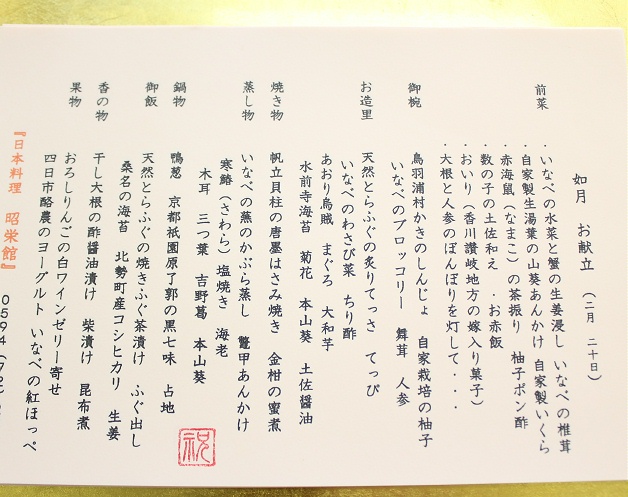 如月　お献立　（二月　二十日）
前菜
・いなべの水菜と蟹の生姜浸し　いなべの椎茸
・自家製生湯葉の山葵あんかけ　自家製いくら
・赤海鼠（なまこ）の茶振り　柚子ポン酢
・数の子の土佐和え　・お赤飯
・おいり（香川讃岐地方の嫁入り菓子）
・大根と人参のぼんぼりを灯して・・・
御椀　鳥羽浦村かきのしんじょ　自家栽培の柚子
いなべのブロッコリー　舞茸　人参
お造里　天然とらふぐの炙りてっさ　てっぴ
いなべのわさび菜　ちり酢
あおり烏賊　まぐろ　大和芋
水前寺海苔　菊花　本山葵　土佐醤油
焼き物　帆立貝柱の唐墨はさみ焼き　金柑の蜜煮
蒸し物　いなべの蕪のかぶら蒸し　鼈甲あんかけ
寒鰆（さわら）塩焼き　海老
木耳　三つ葉　吉野葛　本山葵
鍋物　鴨葱　京都祇園原了郭の黒七味　占地
御飯　天然とらふぐの焼きふぐ茶漬け　ふぐ出し
桑名の海苔　北勢町産コシヒカリ　生姜
香の物　干し大根の酢醤油漬け　柴漬け　昆布煮
果物　おろしりんごの白ワインゼリー寄せ
四日市酪農のヨーグルト　いなべの紅ほっぺ
『日本料理　昭栄館』
0594（72
祝